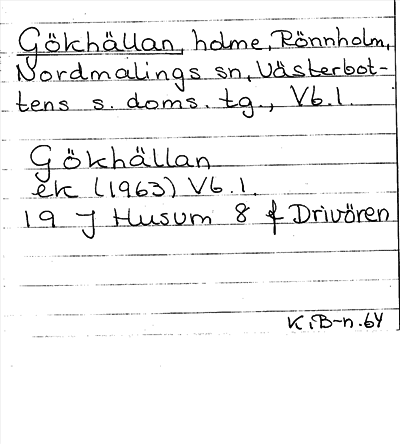 Gökhällan, holme, Rönnholm,
Nordmalings sn, Västerbot-
tens s. doms. tg., Vb. l.
Gökhällan
ek (1963) Vb. l.
19 J Husum 8 f Drivören
K.B-n. 64